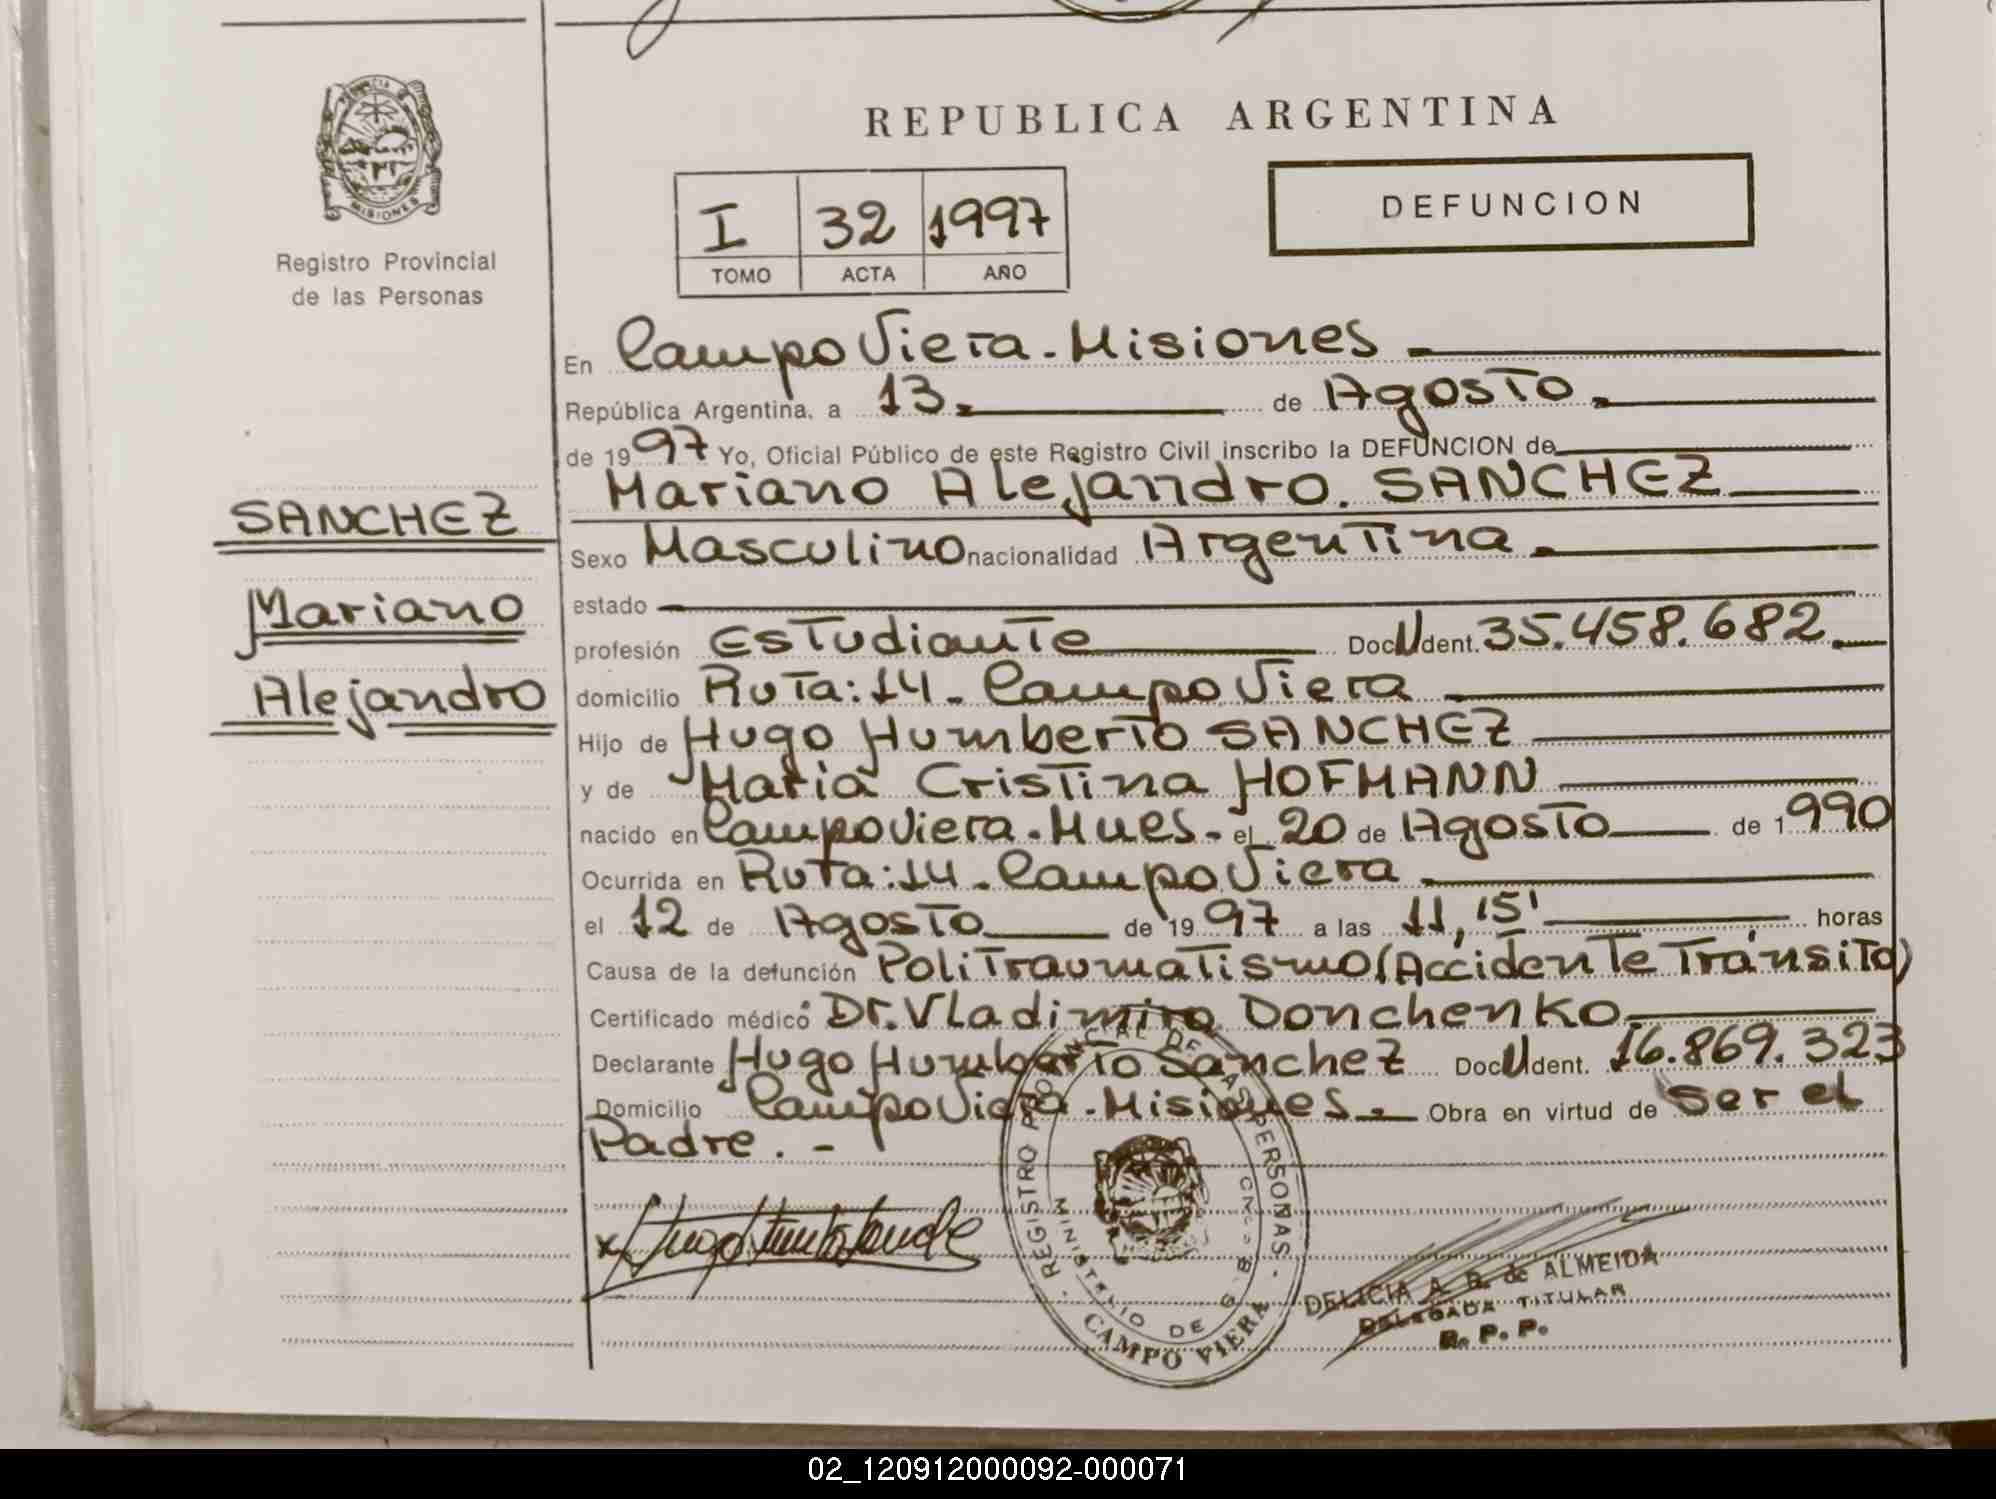 PROVINCIA DE
MISIONES
Registro Provincial
de las Personas
SANCHEZ
Mariano
Alejandro
REPUBLICA ARGENTINA
I 32 1997
TOMO ACTA AÑO
DEFUNCION
En Campo Viera - Misiones.
República Argentina, a 13. de Agosto.
de 1997 Yo, Oficial Público de este Registro Civil inscribo la DEFUNCION de
Mariano Alejandro. SANCHEZ
Sexo Masculino nacionalidad Argentina.
estado
profesión Estudiante Doc U Ident. 35.458.682.
domicilio Ruta:14- Campo Viera
Hijo de Hugo Humberto SANCHEZ
y de Maria Cristina HOFMANN
nacido en Campo Viera - Mnes- el 20 de Agosto de 1990
Ocurrida en Ruta:14- Campo Viera.
el 12 de Agosto de 1997 a las 11,15' horas
Causa de la defunción Politraumatismo (Accidente Tránsito)
Certificado médico Dr. Vladimiro Donchenko.
Declarante Hugo Humberto Sanchez Doc U Ident. 16.869.323
Domicilio Campo Viera - Misiones. Obra en virtud de Ser el
Padre. -
REGISTRO PROVINCIAL DE LAS PERSONAS
MINISTERIO DE
CAMPO VIERA
DELICIA A. B. de ALMEIDA
DELEGADA TITULAR
R. P. P.
02_120912000092-000071